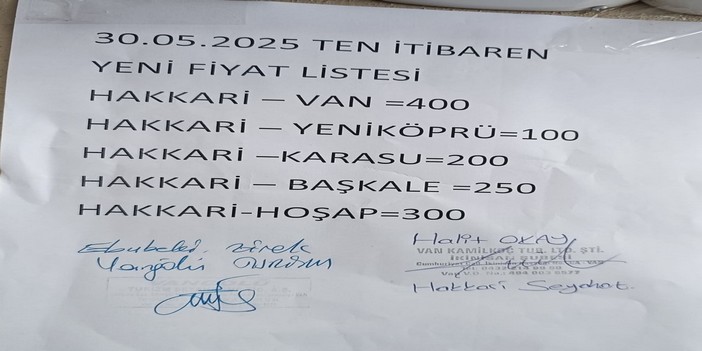 30.05.2025 TEN İTİBAREN
YENİ FİYAT LİSTESİ
HAKKARİ – VAN =400
HAKKARİ – YENİKÖPRÜ=100
HAKKARİ –KARASU=200
HAKKARİ – BAŞKALE =250
HAKKARİ-HOŞAP=300
Halit OKAY
VAN KAMİLKOÇ TUR. LTD. ŞTİ.
İKİNİSAN ŞUBESİ
Hakkari Seyahat